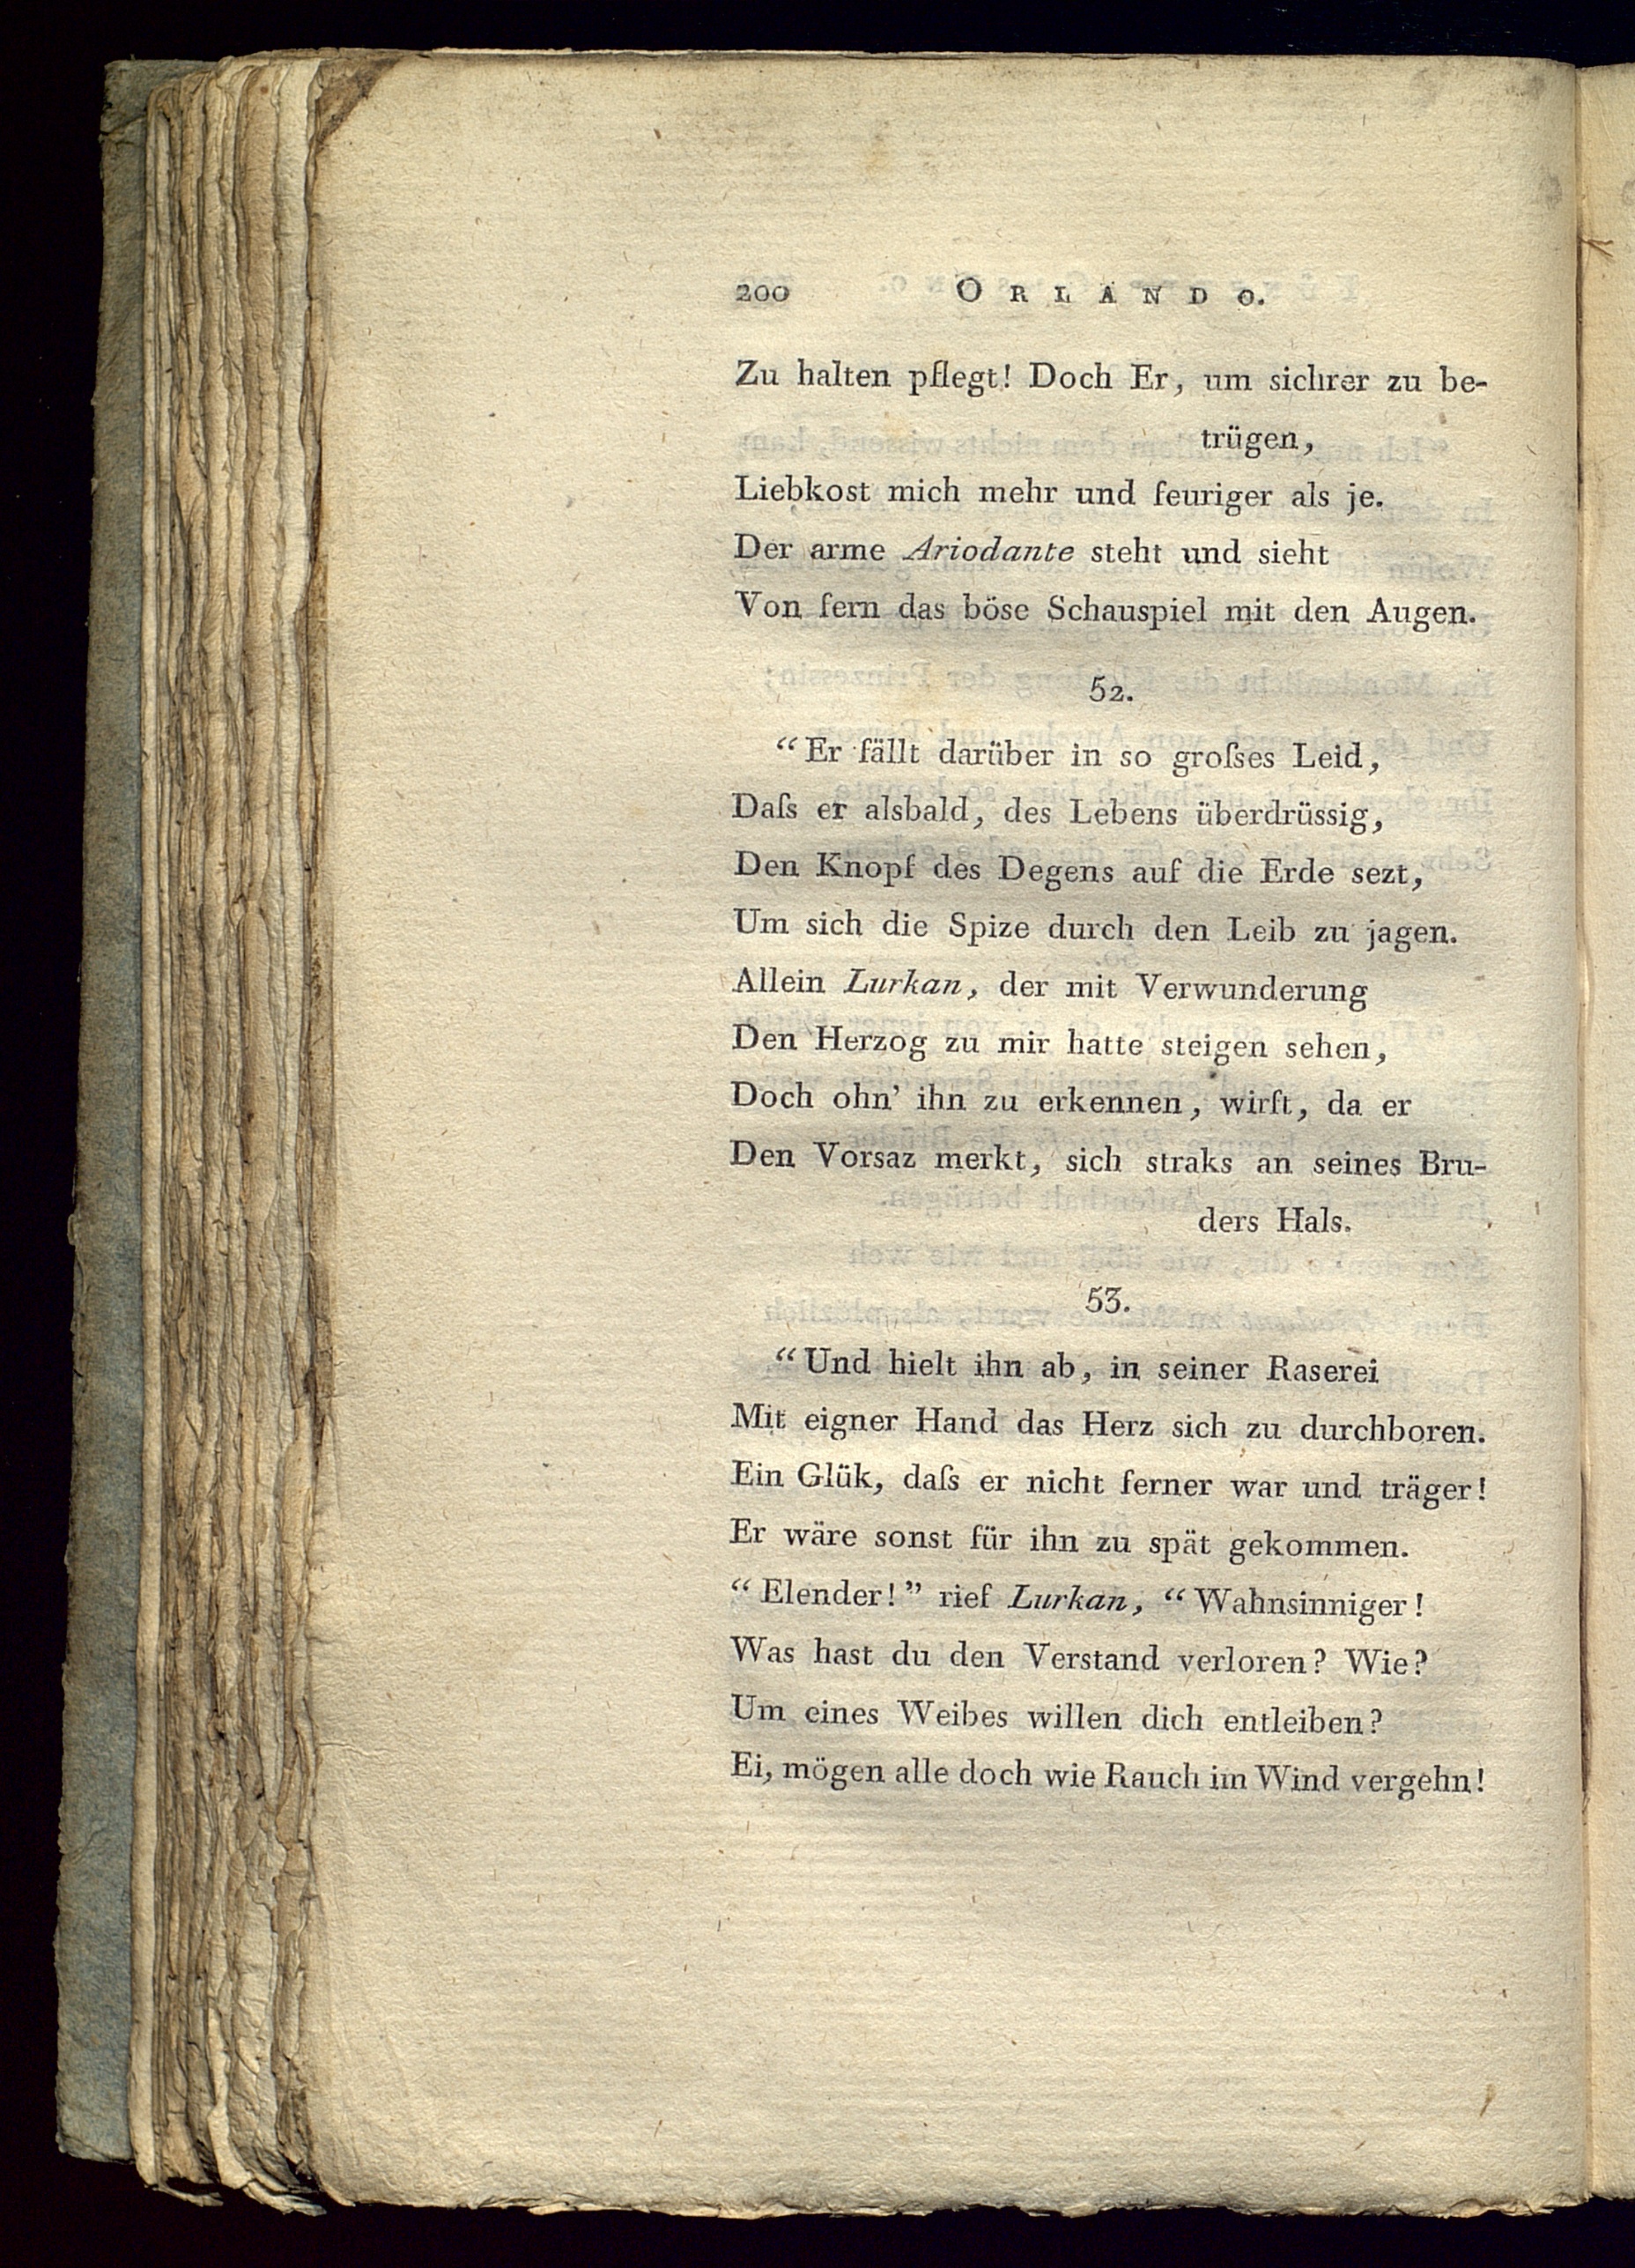 200 ORLANDO.
Zu halten pflegt! Doch Er, um sichrer zu be-
trügen,
Liebkost mich mehr und feuriger als je.
Der arme Ariodante steht und sieht
Von fern das böse Schauspiel mit den Augen.
52.
“Er fällt darüber in so groſses Leid,
Daſs er alsbald, des Lebens überdrüssig,
Den Knopf des Degens auf die Erde sezt,
Um sich die Spize durch den Leib zu jagen.
Allein Lurkan, der mit Verwunderung
Den Herzog zu mir hatte steigen sehen,
Doch ohn’ ihn zu erkennen, wirft, da er
Den Vorsaz merkt, sich straks an seines Bru-
ders Hals.
53.
“Und hielt ihn ab, in seiner Raserei
Mit eigner Hand das Herz sich zu durchboren.
Ein Glük, daſs er nicht ferner war und träger!
Er wäre sonst für ihn zu spät gekommen.
“Elender!” rief Lurkan, “Wahnsinniger!
Was hast du den Verstand verloren? Wie?
Um eines Weibes willen dich entleiben?
Ei, mögen alle doch wie Rauch im Wind vergehn!